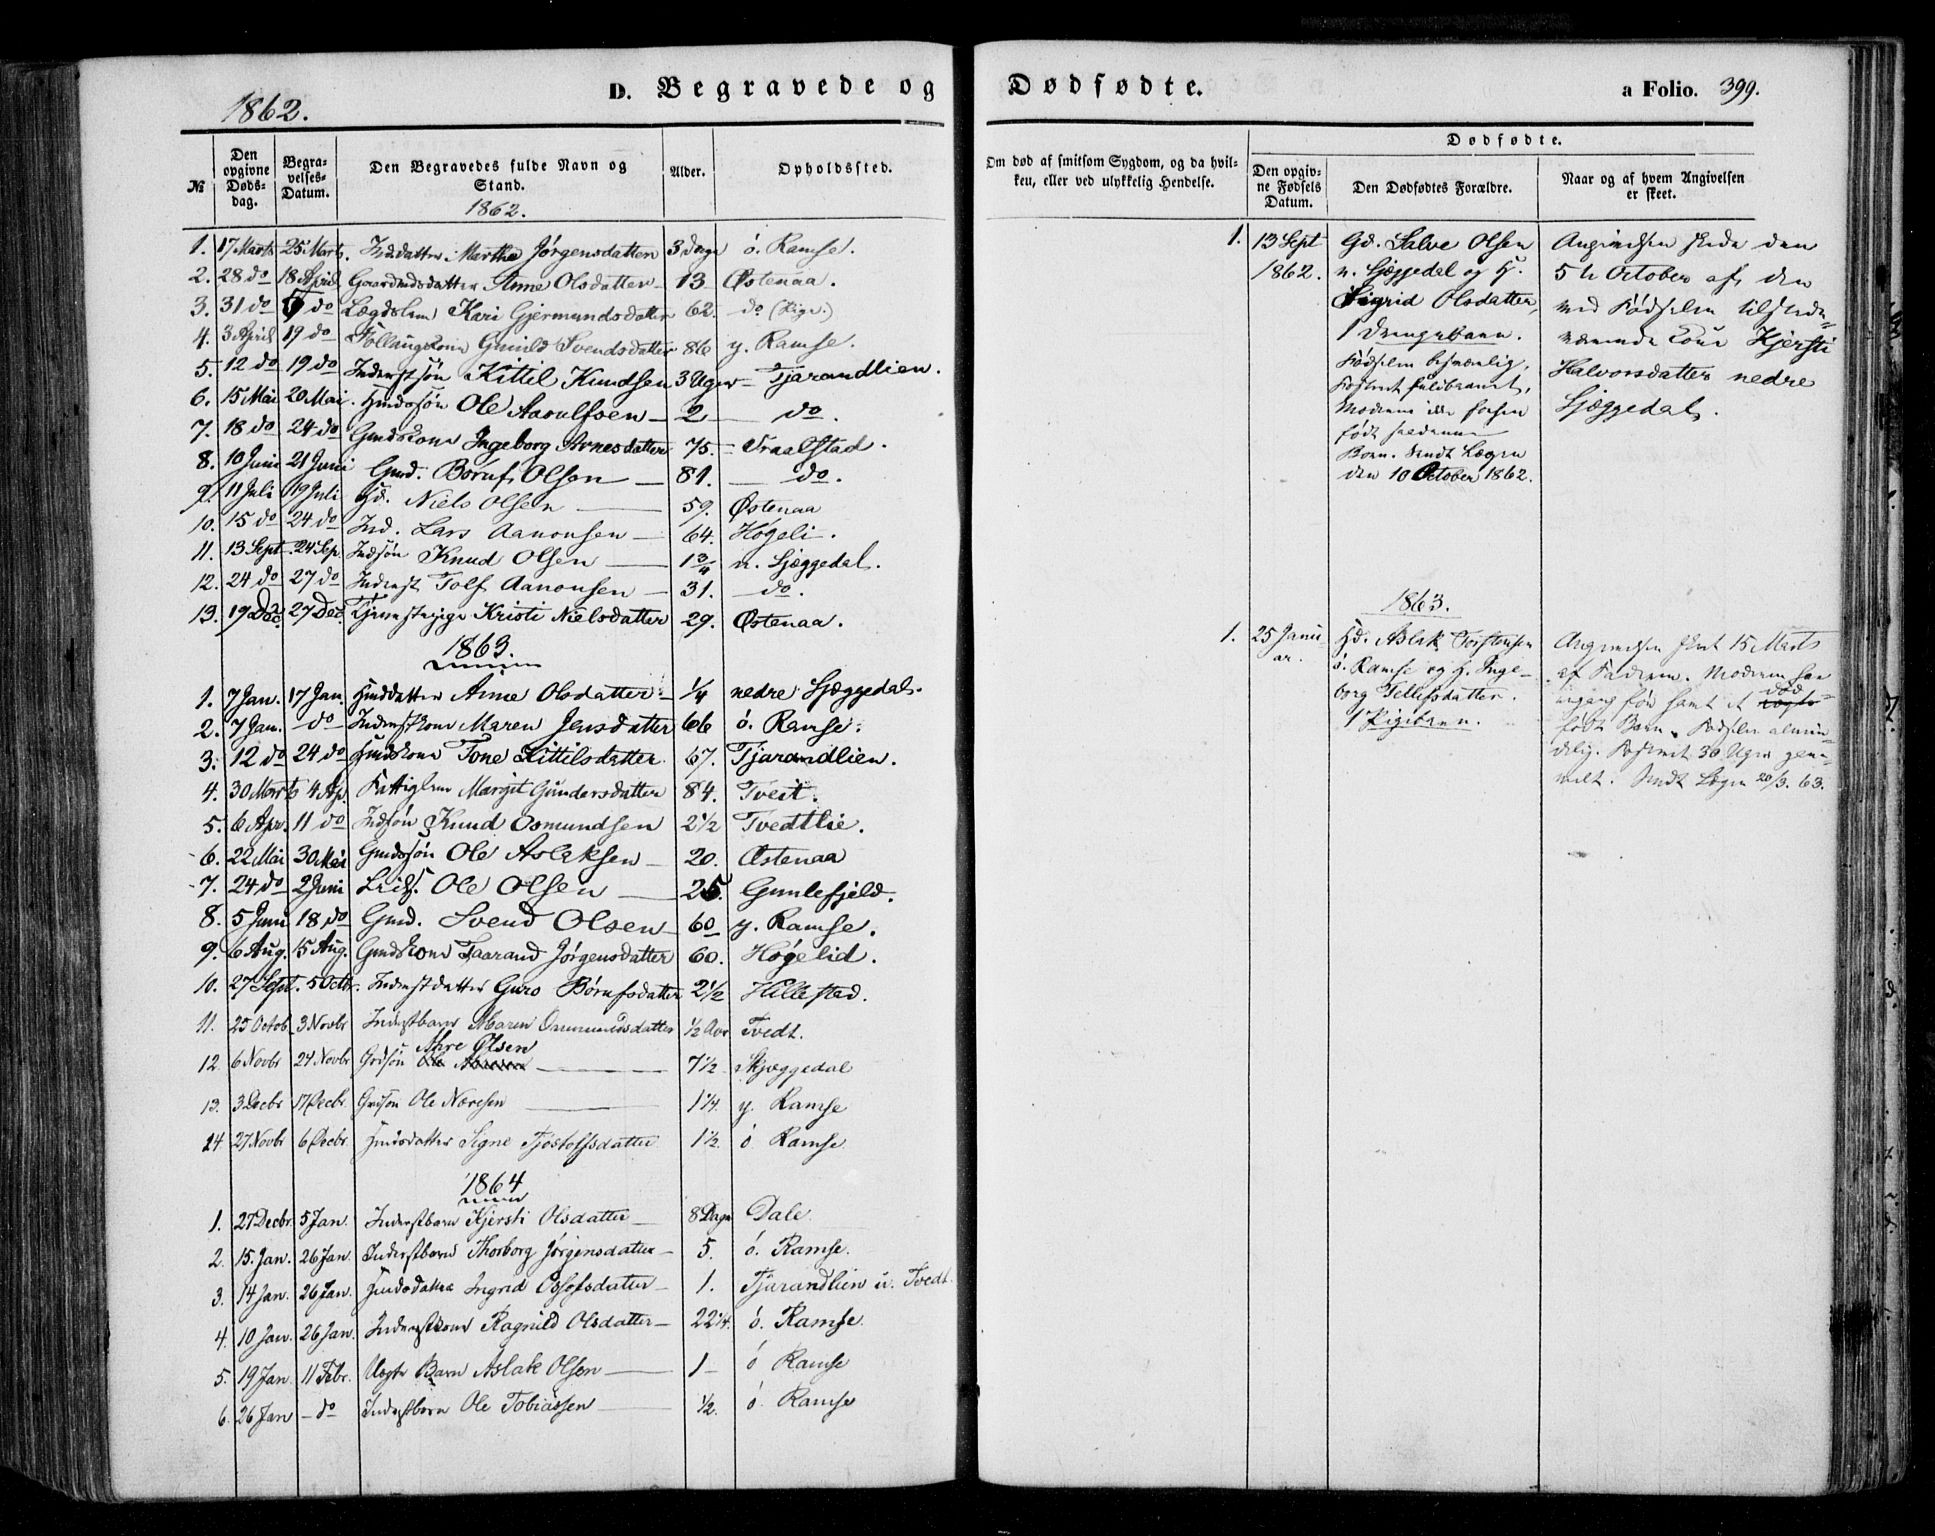 1862.
D. Begravede og
№
Den opgivne Døds-dag.
Begra-velses-Datum.
Den Begravedes fulde Navn og Stand.
Alder.
Opholdssted.
1862.
1. 17 Marts 25 Marts. Inddatter Marthe Jørgensdatter 3 Dage ö. Ramse.
2. 28 do 18 April Anne Olsdatter 13 Østenaa.
3. 31 do do Lægdslem Kari Gjermundsdatter 62. do
4. 3 April 19 do Gunild Svendsdatter 86 y. Ramse.
5. 12 do 19 do Inderstsøn Kittil Knudsen 3 Uger Tjarandlien.
6. 15 Mai 20 Mai. Hmdssøn Ole Aasulfsen 2 do.
7. 18 do 24 do Gmdskone Ingeborg Arnesdatter 75. Traalstad.
8. 10 Juni 21 Juni Gmd. Børuf Olsen 81. do.
9. 11 Juli 19 Juli Hd. Niels Olsen 59. Østenaa
10. 15 do 24 do Ind. Lars Aanonsen 64. Høgeli.
11. 13 Sept. 24 Sep. Indsøn Knud Olsen 1 3/4 n. Sjæggedal.
12. 24 do 27 do Inderst Tolf Aanonsen 31. do.
13. 19 Dec. 27 Dec. Tjenestepige Kristi Nielsdatter 29. Østenaa.
1863.
1. 7 Jan. 17 Jan. Hmddatter Anne Olsdatter 1/4 nedre Sjæggedal.
2. 7 Jan. do Inderstkone Maren Jensdatter 66 ö. Ramse.
3. 12 do 24 do Hmdskone Tone Kittilsdatter 67. Tjarandlien.
4. 30 Marts 4 Ap. Fattiglem Margit Gundersdatter 84. Tveit.
5. 6 Apr. 11 do Indsøn Knud Osmundsen 2 1/2 Tvedtlie.
6. 22 Mai 30 Mai Gmdssøn Ole Aslaksen 20. Østenaa
7. 24 do 2 Juni Ole Olsen 25. Gunlefjeld.
8. 5 Juni 18 do Gmd. Svend Olsen 60 y. Ramse.
9. 6 Aug. 15 Aug. Gmdskone Taarand Jørgensdatter 60. Høgelid.
10. 27 Sept. 5 Octbr. Inderstdatter Guro Børufsdatter 2 1/2 Hillestad.
11. 25 Octob. 3 Novbr Inderstbarn Maren Ommundsdatter 1/2 Aar Tvedt.
Aure Olsen
12. 6 Novbr 24 Novbr Grdsøn 7 1/2 Skjæggedal
13. 3 Decbr 17 Decbr. Grdsøn Ole Næresen 1 1/4. y. Ramse
14 27 Novbr 6 Decbr. Hmdsdatter Signe Tjostolfsdatter 1 1/2. ö Ramse.
1864
1. 27 Decbr. 5 Jan. Inderstbarn Kjersti Olsdatter 8 Dage Dale.
2. 15. Jan. 26 Jan. Inderstbarn Thorborg Jørgensdatter 5. ö. Ramse.
3. 14 Jan. 26 Jan. Hmdsdatter Ingrid Ossofsdatter 1. Tjarandlien u. Tvedt.
4. 10 Jan. 26 Jan. Inderstkone Ragnild Olsdatter 22 1/4. ö. Ramse.
5. 19 Jan. 11 Febr. Uægte Barn Aslak Olsen 1 ö Ramse
6. 26 Jan do Inderstbarn Ole Tobiassen 1/2. ö. Ramse
Dødfødte.
a Folio. 399.
Om død af smitsom Sygdom, og da hvil-ken, eller ved ulykkelig Hendelse.
Dødfødte.
Den opgiv-ne Fødsels Datum.
Den Dødfødtes Forældre.
Naar og af hvem Angivelsen er skeet.
1. 13 Sept 1862.
Gd. Salve Olsen
n. Sjæggedal og H.
Sigrid Olsdatter,
1 Drengebarn.
Fødselen besværlig,
Fosteret fuldbaaret,
Moderen ikke forhen
født
Børn. Sendt Lægen
den 10 October 1862.
Angivelsen skede den
5te October af den
ved Fødselen tilstede-
værende Kone Kjersti
Halvorsdatter nedre
Sjæggedal.
1863.
1. 25 Janu-ar.
Hd. Aslak Torstensen
ö. Ramse og H. Inge-
borg Tellefsdatter.
1 Pigebarn.
Angivelsen skeet 15 Marts
af Faderen. Moderen har
1 gang før havt et død
født Barn. Fødselen almin-
delig. Fosteret 30 Uger gam-
melt. Sendt Lægen 20/3. 63.